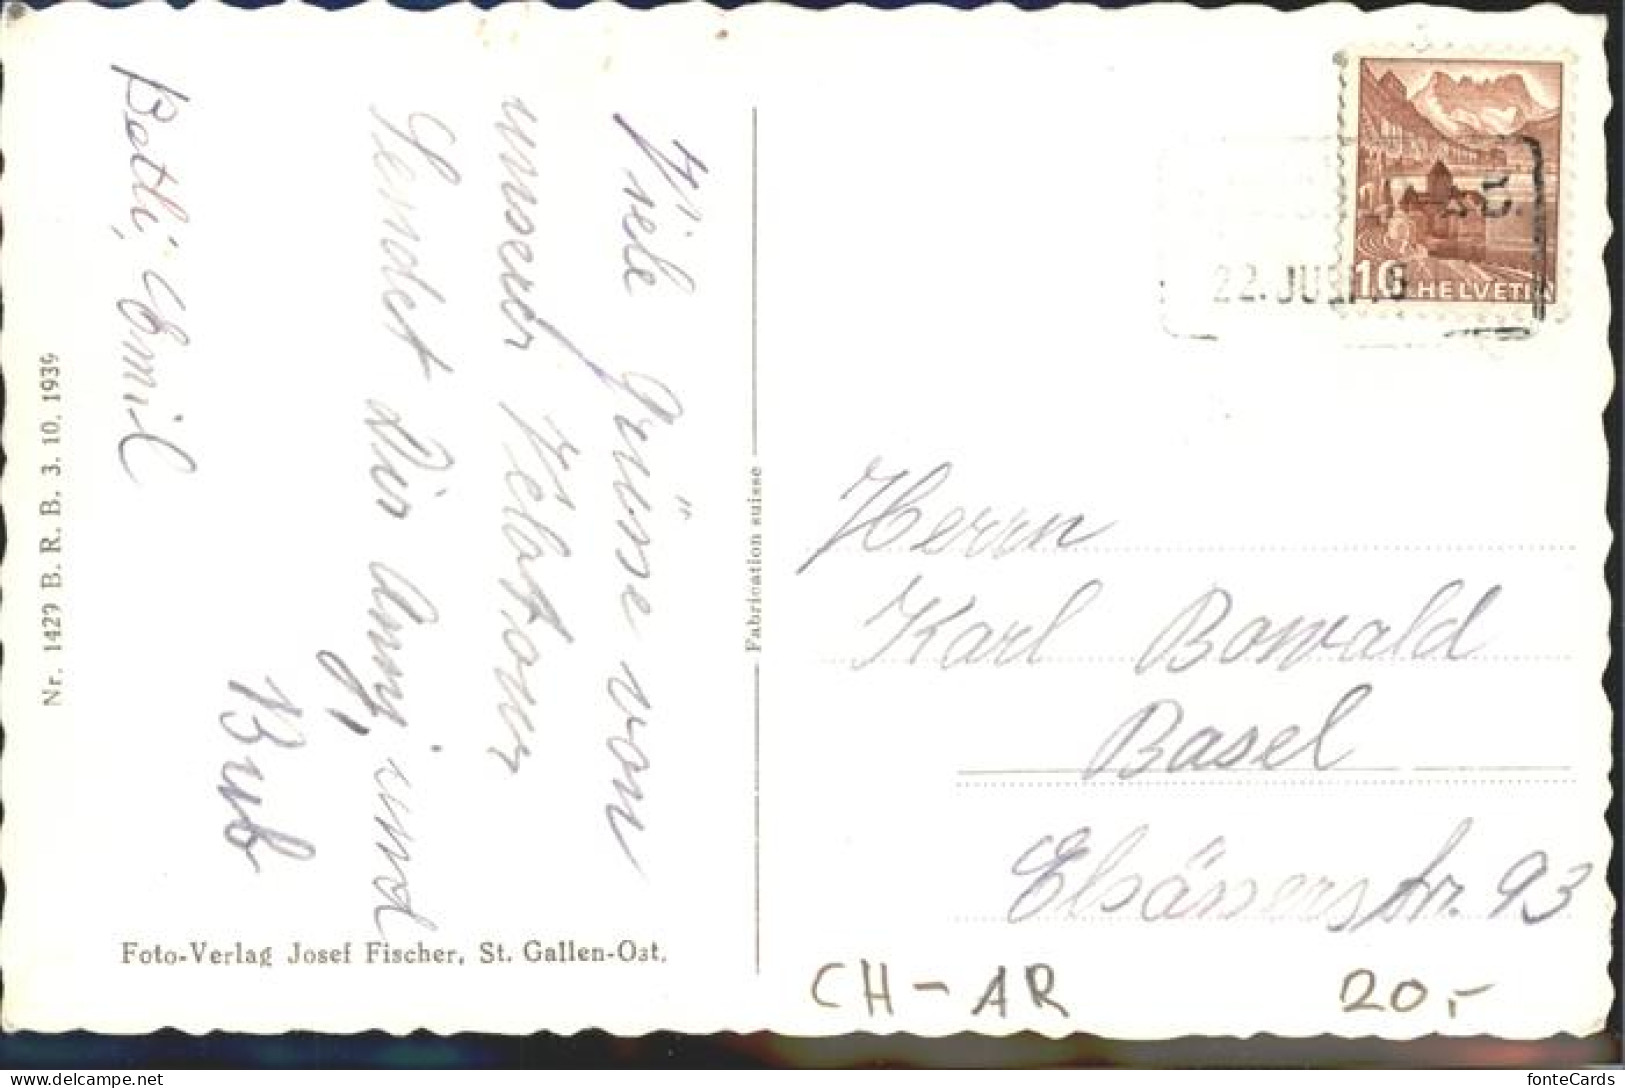 Viele Grüsse von
unserer Velotour
Sendet Dir Anny und
Bub
Betli, Emil
Nr. 1427 B. R. B. 3. 10. 1939
Foto-Verlag Josef Fischer, St. Gallen-Ost.
Fabrication suisse
22. JUNI
10
HELVETIA
Herrn
Karl Bowald
Basel
Elsässerstr. 93
CH-AR
20,-
fonteCards